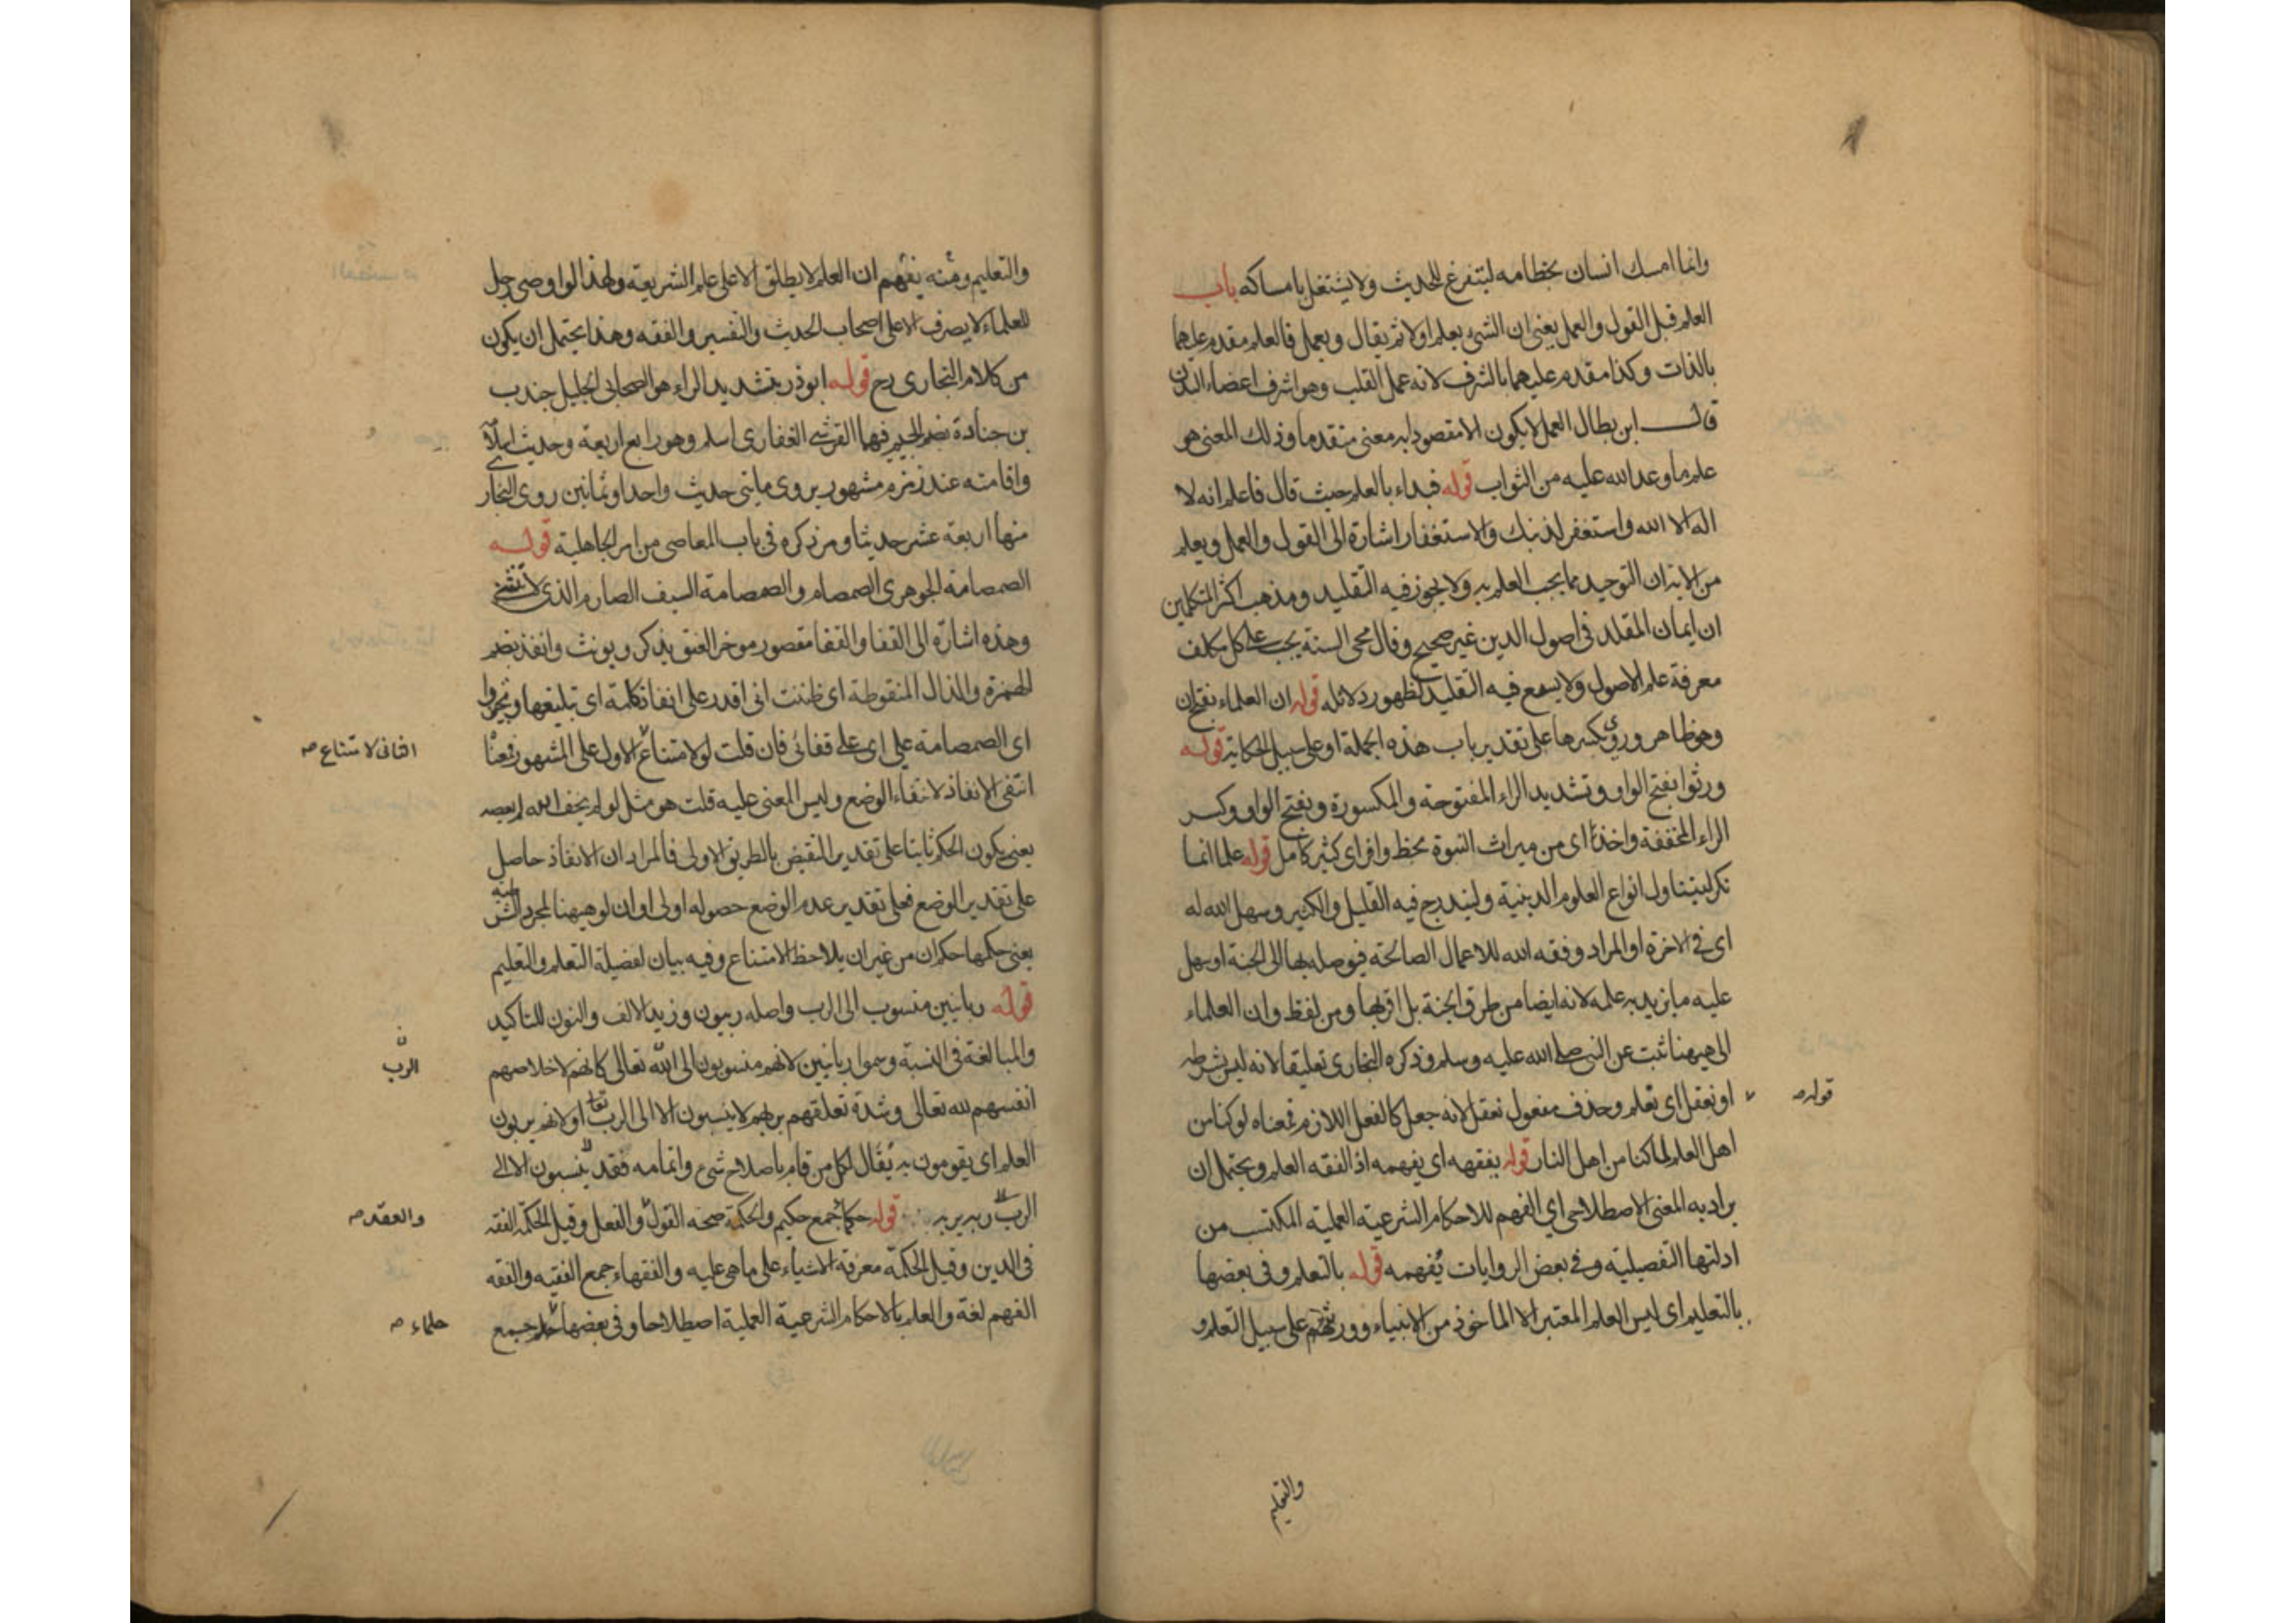 وانما امسك انسان بخطامه ليتفرغ للحديث ولا يشتغل بامساكه باب
العلم قبل القول والعمل يعني ان الشئ يعلم اولا ثم يقال ويعمل فالعلم مقدم عليهما
بالذات وكذا مقدم عليهما بالشرف لانه عمل القلب وهو اشرف اعضاء البدن
قال ابن بطال العمل لا يكون الا مقصودا به معنى متقدما وذلك المعنى هو
علم ما وعد الله عليه من الثواب قوله فبداء بالعلم حيث قال فاعلم انه لا
اله الا الله واستغفر لذنبك والاستغفار اشارة الى القول والعمل ويعلم
من الاية ان التوحيد مما يجب العلم به ولا يجوز فيه التقليد ومذهب اكثر المتكلمين
ان ايمان المقلد في اصول الدين غير صحيح وقال محى السنة يجب على كل مكلف
معرفة علم الاصول ولا يسع فيه التقليد لظهور دلائله قوله ان العلماء بفتح ان
وهو ظاهر وروى بكسرها على تقدير باب هذه الجملة او على سبيل الحكاية قوله
ورثوا بفتح الواو وتشديد الراء المفتوحة والمكسورة وبفتح الواو وكسر
الراء المخففة واخذه اى من ميراث النبوة بحظ وافر اى كثير كامل قوله علما انما
نكر ليتناول انواع العلوم الدينية وليندرج فيه القليل والكثير وسهل الله له
اى في الاخرة او المراد وفقه الله للاعمال الصالحة فيوصله بها الى الجنة او سهل
عليه ما يزيد به علمه لانه ايضا من طرق الجنة بل اقربها ومن لفظ وان العلماء
الى هيهنا ثبت عن النبي صلى الله عليه وسلم وذكره البخارى تعليقا لانه ليس بشرطه
او نعقل اى نعلم وحذف مفعول نعقل لانه جعل كالفعل اللازم فمعناه لو كنا من
قوله صح
اهل العلم لما كنا من اهل النار قوله يفقهه اى يفهمه اذ الفقه العلم ويحتمل ان
يراد به المعنى الاصطلاحى اي الفهم للاحكام الشرعية العملية المكتسب من
ادلتها التفصيلية وفي بعض الروايات يفهمه قوله بالتعلم وفى بعضها
بالتعليم اى ليس العلم المعتبر الا الماخوذ من الانبياء وورثتهم على سبيل التعلم و
والتعليم
والتعليم ومنه يفهم ان العلم لا يطلق الا على علم الشريعة ولهذا لو اوصى رجل
للعلماء لا يصرف الا على اصحاب الحديث والتفسير والفقه وهذا يحتمل ان يكون
من كلام البخارى رح قوله ابو ذر بتشديد الراء هو الصحابى الجليل جندب
بن جنادة بضم الجيم فيهما القرشى الغفارى اسلم وهو رابع اربعة وحديث اسلامه
واقامته عند زمزم مشهور يروى مايتى حديث واحدا وثمانين روى البخارى
منها اربعة عشر حديثا ومر ذكره في باب المعاصى من امر الجاهلية قوله
الصمصامة الجوهرى الصمصام والصمصامة السيف الصارم الذى لا ينثنى
وهذه اشارة الى القفا والقفا مقصور موخر العنق يذكر ويونث وانفذ بضم
الهمزة والذال المنقوطة اى ظننت انى اقدر على انفاذ كلمة اى تبليغها وتجيزوا
اى الصمصامة على اى على قفائى فان قلت لو لامتناع الاول على المشهور فمعناه
الثانى لامتناع صح
انتفى الانفاذ لانتفاء الوضع وليس المعنى عليه قلت هو مثل لو لم يخف الله لم يعصه
يعنى يكون الحكم ثابتا على تقدير النقيض بالطريق الاولى فالمراد ان الانفاذ حاصل
على تقدير الوضع فعلى تقدير عدم الوضع حصوله اولى او ان لو هيهنا لمجرد الشرطية
يعنى حكمها حكم ان من غير ان يلاحظ الامتناع وفيه بيان لفضيلة التعلم والتعليم
قوله ربانيين منسوب الى الرب واصله ربيون وزيد الالف والنون للتاكيد
والمبالغة في النسبة وسموا ربانيين لانهم منسوبون الى الله تعالى كانهم لاخلاصهم
الرب
انفسهم لله تعالى وشدة تعلقهم بربهم لا ينسبون الا الى الرب تعا او لانهم يربون
العلم اى يقومون به يقال لكل من قام باصلاح شئ واتمامه فقد ينسبون الا الى
الرب ربه يربه قوله حكماء جمع حكيم والحكمة صحة القول والفعل وقيل الحكمة الفقه
والعقد صح
فى الدين وقيل الحكمة معرفة الاشياء على ما هى عليه والفقهاء جمع الفقيه والفقه
الفهم لغة والعلم بالاحكام الشرعية العملية اصطلاحا وفى بعضها حلم جمع
حلماء صح